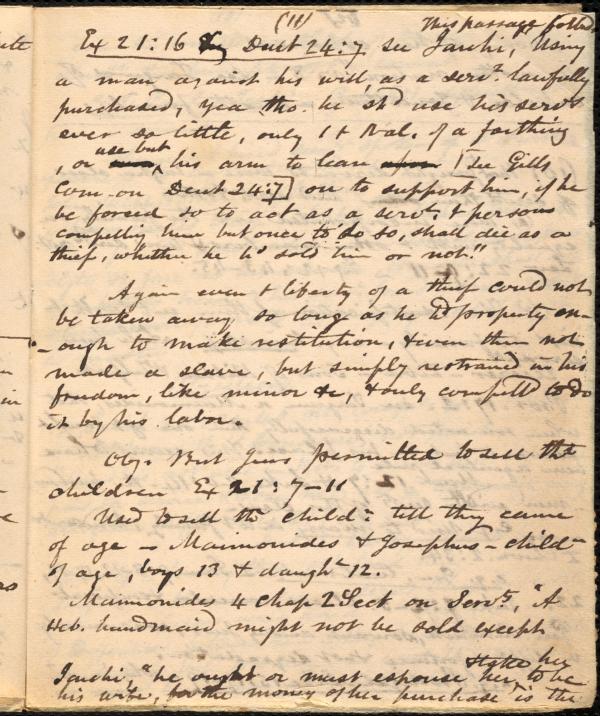 (11)
This passage forbids
Ex 21:16 Deut 24:7 see Jarchi, Using
a man against his will, as a servt. lawfully
purchased, yea tho. he shd use his servs
ever so little, only t val. of a farthing
, or use but his arm to lean upon [see Gills
Com- on Deut 24:7] on to support him, if he
be forced so to act as a servt. t person
compelling him but once to do so, shall die as a
thief, whether he hd sold him or not."
Again even t liberty of a thief could not
be taken away so long as he hd property en-
-ough to make restitution, & even then not
made a slave, but simply restrained in his
freedom, like minor &c, & only compelld to do
it by his labor.
Obj. But Jews permitted to sell thr
children Ex 21:7-11
Used to sell thr childn till they came
of age - Maimonides & Josephus - childn
of age, boys 13 & daught 12.
Maimonides 4 Chap 2 Sect on Servts, "A
Heb. handmaid might not be sold except
to her
Jarchi, "he ought or must espouse her to be
his wife, for the money of her purchase is the